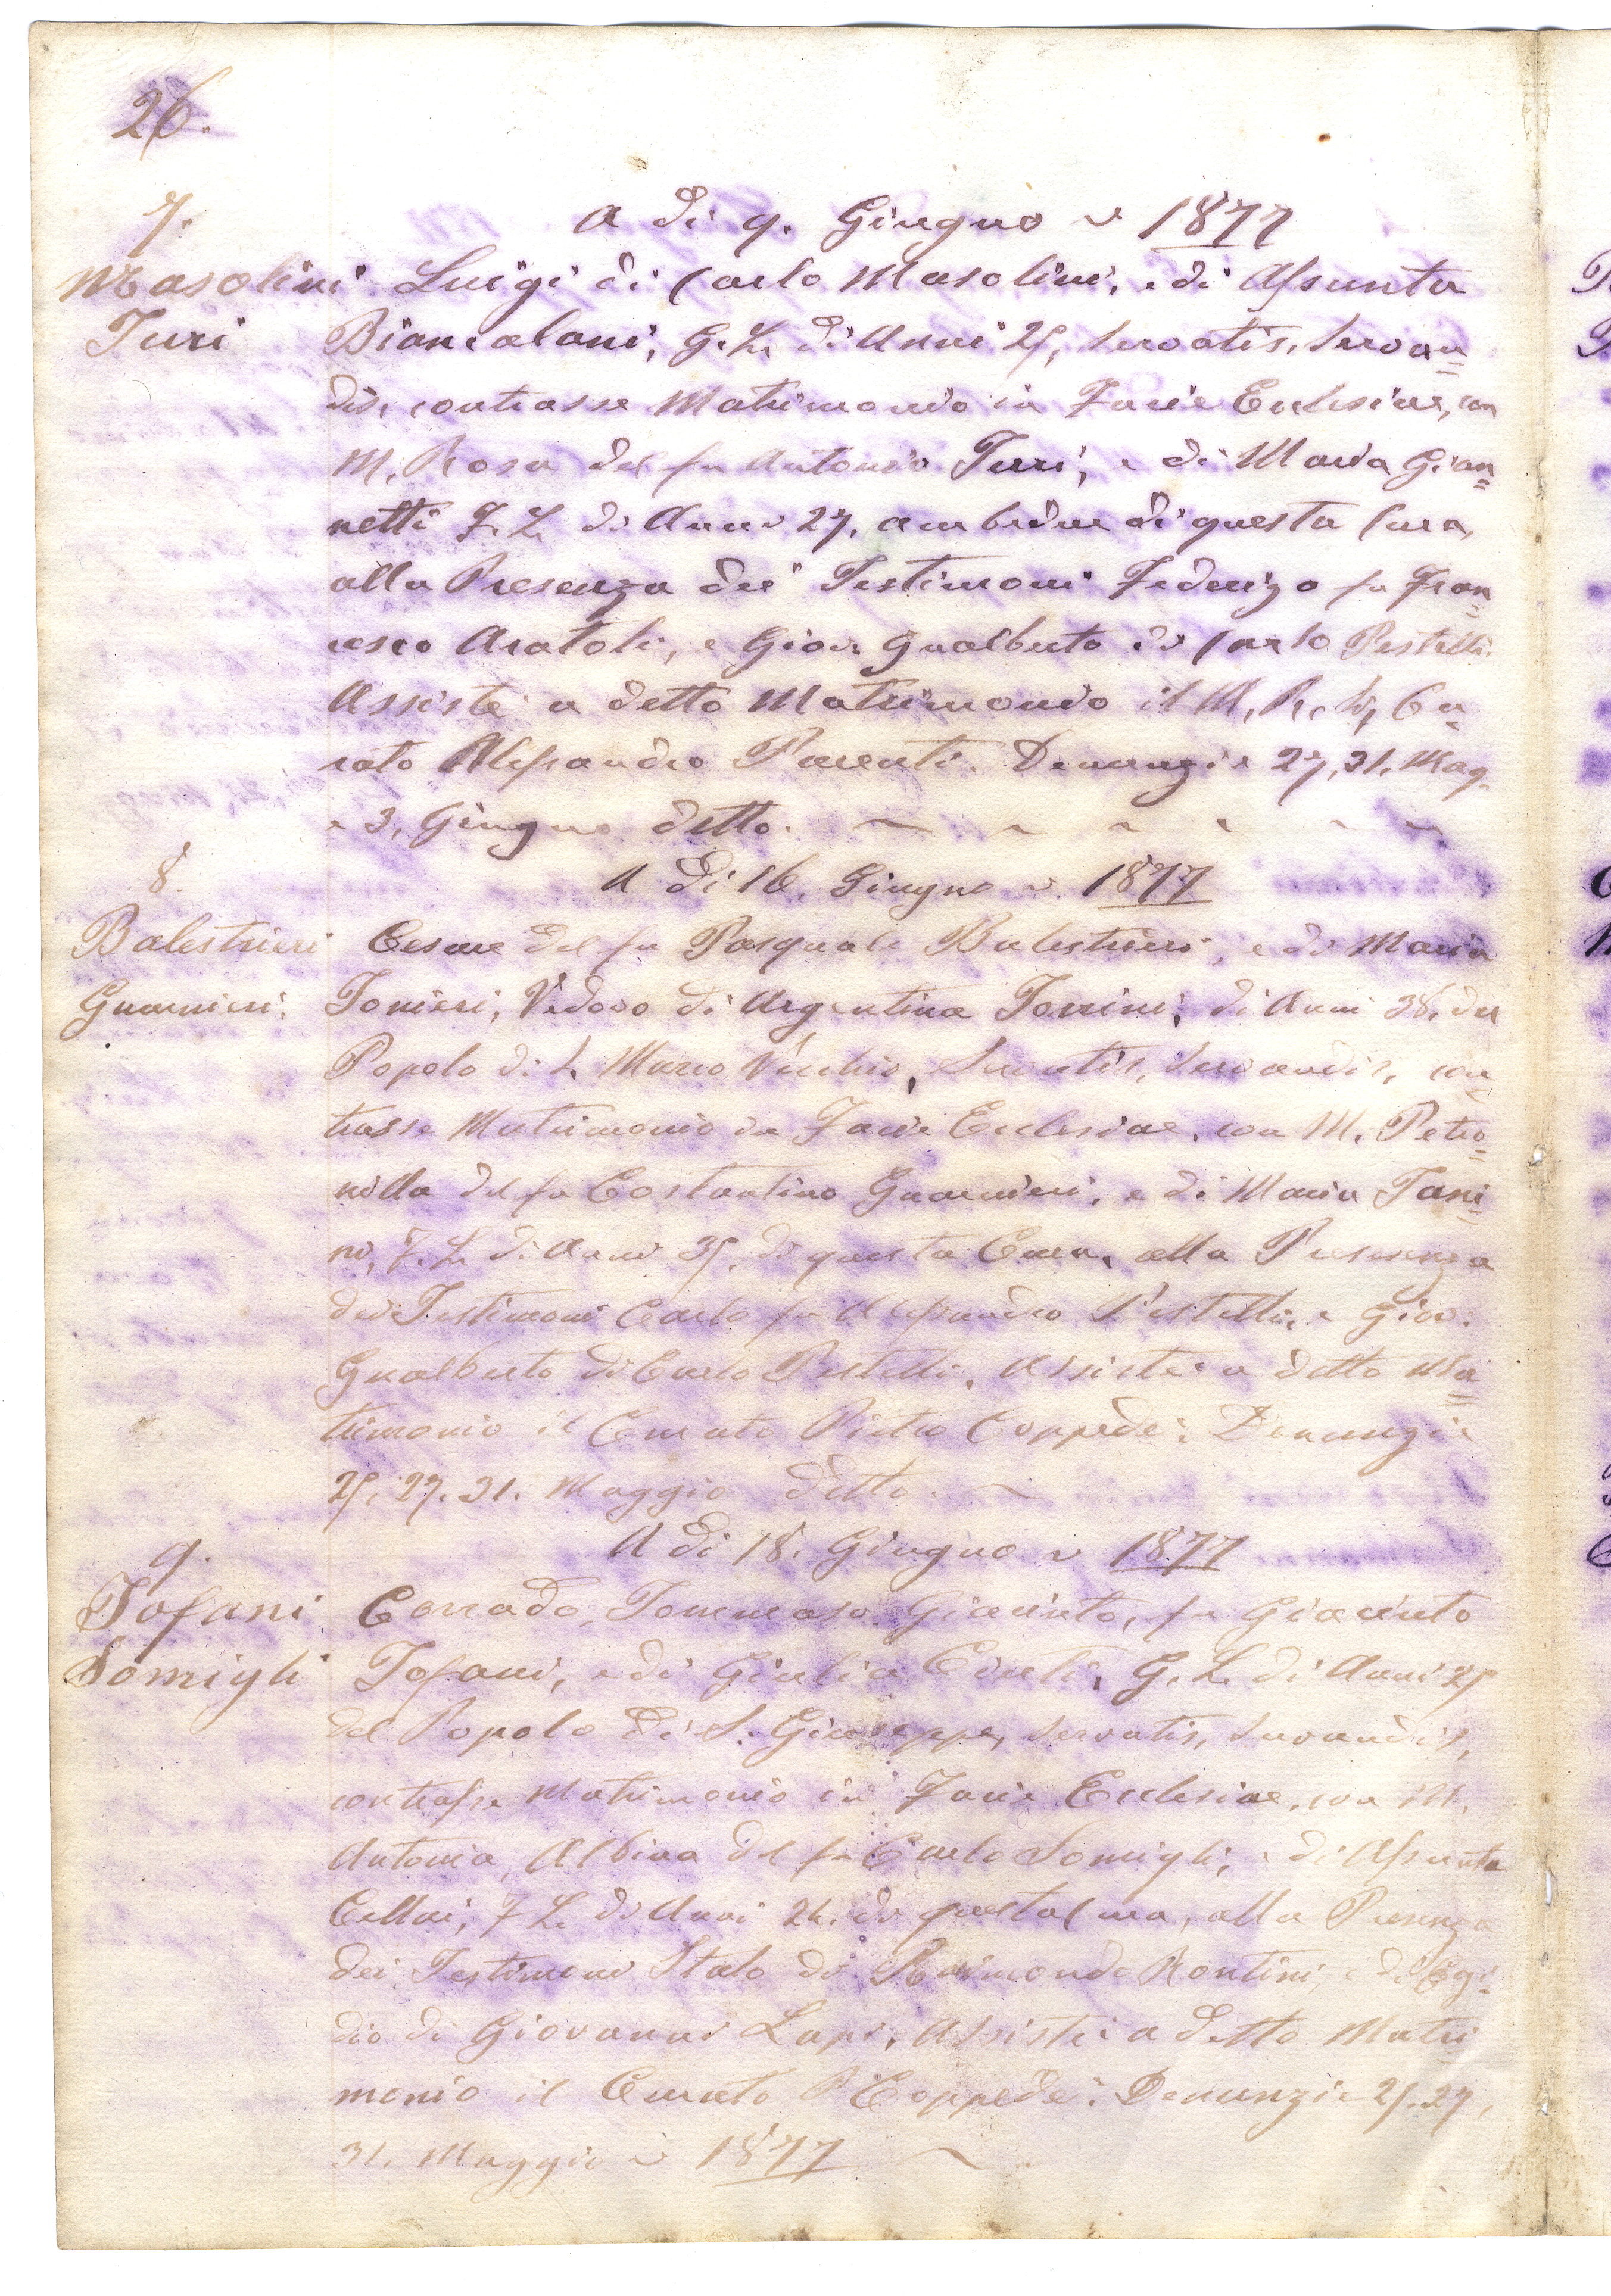 26.
7.
A dì 9. Giugno 1877
Masolini Luigi di Carlo Masolini, e di Assunta
Turi Biancalani, G. L. di Anni 25, Servatis, Servan=
dis, contrasse Matrimonio in Facie Ecclesiae, con
M. Rosa del fu Antonio Turi, e di Maria Gian=
netti F. L. di Anni 27, ambedue di questa Cura,
alla Presenza dei Testimoni Federigo fu Fran=
cesco Aratoli, e Giov: Gualberto di Carlo Pestelli.
Assistè a detto Matrimonio il M. R. Sig. Cu=
rato Alessandro Parenti. Denunzie 27, 31. Mag.
e 3, Giugno detto.
8.
A dì 16. Giugno 1877
Balestrieri Cesare del fu Pasquale Balestrieri, e di Maria
Guarnieri. Tonieri, Vedovo di Argentina Torrini, di Anni 38. del
Popolo di S. Marco Vecchio, Servatis, Servandis, con=
trasse Matrimonio in Facie Ecclesiae, con M. Petro=
nilla del fu Costantino Guarnieri, e di Maria Tani=
ni, F. L. di Anni 35, di questa Cura, alla Presenza
dei Testimoni Carlo fu Alessandro Pestelli, e Giov:
Gualberto di Carlo Pestelli. Assistè a detto Ma=
trimonio il Curato Pietro Coppedè: Denunzie
25, 27. 31. Maggio detto.
9.
A dì 18. Giugno 1877
Tofani Corrado, Tommaso Giacinto, fu Giacinto
Somigli Tofani, e di Giulia Conti, G. L. di Anni 25
del Popolo di S. Giuseppe, Servatis, Servandis,
contrasse Matrimonio in Facie Ecclesiae, con M.
Antonia, Albina del fu Carlo Somigli, e di Assunta
Cellai, F. L. di Anni 24. di questa Cura, alla Presenza
dei Testimoni Italo di Raimondo Rontini, e di Egi=
dio di Giovanni Lapi, Assistè a detto Matri
monio il Curato P Coppedè: Denunzie 25. 27,
31. Maggio 1877